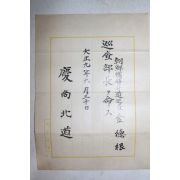 朝鮮總督府道巡査 金德根
巡査部長ヲ命ス
大正九年六月三十日
慶尚北道